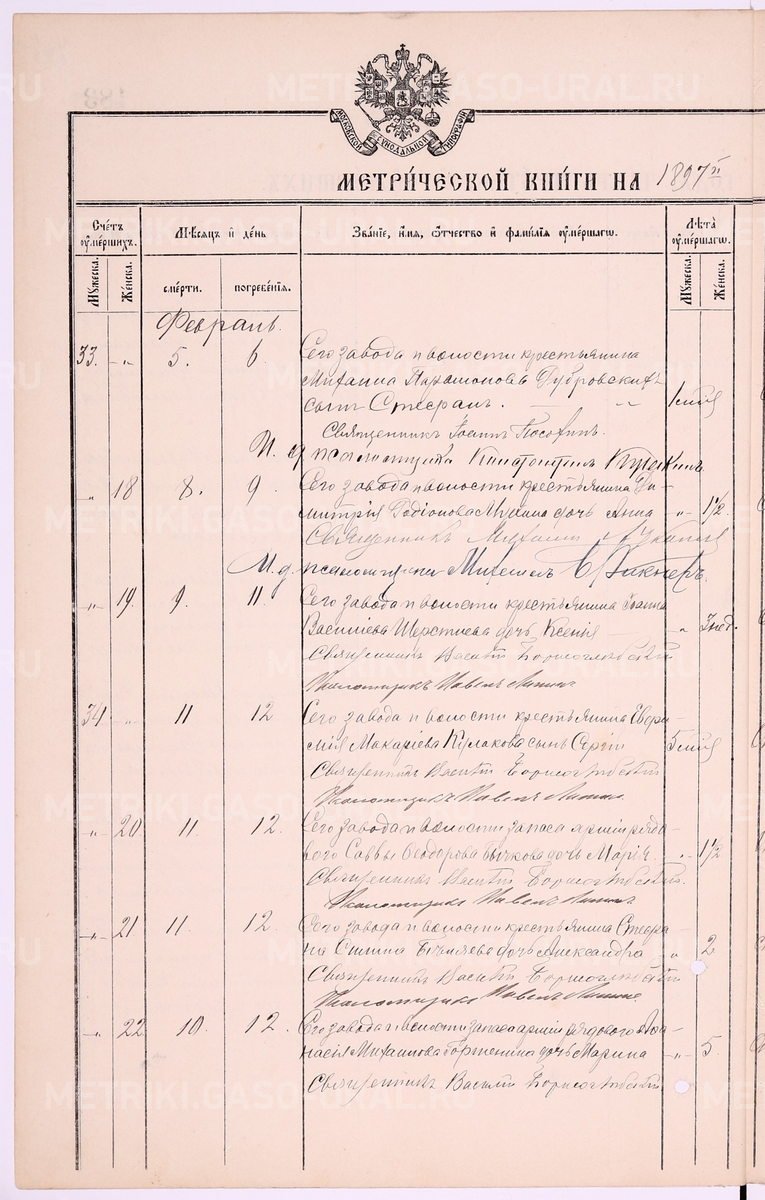 МОСКОВСКОЙ СѴНОДАЛЬНОЙ ТИПОГРАФІИ
МЕТРИ́ЧЕСКОЙ КНИ́ГИ НА 1897 й
Счéтъ ᲂу҆мéршихъ.
Мꙋ́жеска.
Жéнска.
Мѣ́сяцъ и҆ дéнь
смéрти.
погребéнїѧ.
Звáнїе, и҆́мѧ, ѻ҆́тчество и҆ фамѝлїѧ ᲂу҆мéршагѡ.
Лѣ́та ᲂу҆мéршагѡ.
Мꙋ́жеска.
Жéнска.
Февраль.
33. - „ 5. 6 Сего завода и волости крестьянина
Михаила Парамонова Дубровскихъ
сынъ Стефанъ. „ 1 мѣс
Священникъ Іоаннъ
И. д. псаломщика Константинъ
„ 18 8. 9. Сего завода и волости крестьянина Ди-
митрія Родіонова дочь Анна „ 1½
Священникъ Михаилъ
И. д. псаломщика Михаилъ
„ 19. 9. 11. Сего завода и волости крестьянина Іоанна
Василіева Шерстнева дочь Ксенія „ 3 нед.
Священникъ Василій Борисоглѣбскій
Псаломщикъ Павелъ
34 „ 11 12 Сего завода и волости крестьянина Евфи-
мія Макаріева Кулакова сынъ Сергій 5 мѣс
Священникъ Василій Борисоглѣбскій
Псаломщикъ Павелъ
„ 20 11. 12. Сего завода и волости запаса арміи рядо-
вого Саввы Ѳеодорова Бычкова дочь Марія. „ 1½
Священникъ Василій Борисоглѣбскій.
Псаломщикъ Павелъ
„ 21 11. 12. Сего завода и волости крестьянина Стефа-
на дочь Александра „ 2
Священникъ Василій Борисоглѣбскій
Псаломщикъ Павелъ
„ 22 10. 12. Сего завода и волости запаса арміи рядового Аѳа-
насія Михаилова дочь Марина „ 5.
Священникъ Василій Борисоглѣбскій
METRIKI.GASO-URAL.RU